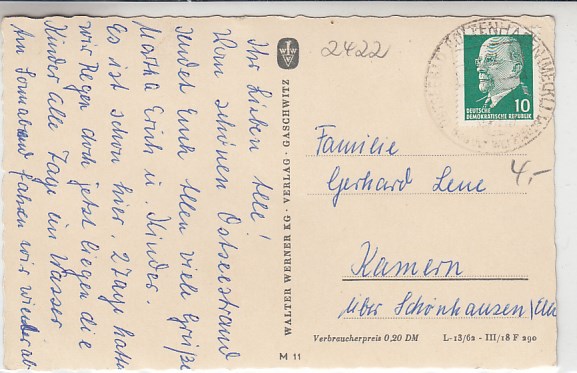 Ihr Lieben alle!
Vom schönen Ostseestrand
sendet Euch allen viele Grüße
Martha Erich u. Kinder.
Es ist schon hier. 2 Tage hatten
wir Regen doch jetzt liegen die
Kinder alle Tage im Wasser
Am Sonnabend fahren wir wieder ab
WALTER WERNER KG · VERLAG · GASCHWITZ
VWW
2422
DEUTSCHE
DEMOKRATISCHE REPUBLIK
10
BOLTENHAGEN (MECKL)
Familie
Gerhard Lene
4,-
Kamern
über Schönhausen/Elbe
Verbraucherpreis 0,20 DM L-13/62 - III/18 F 290
M 11